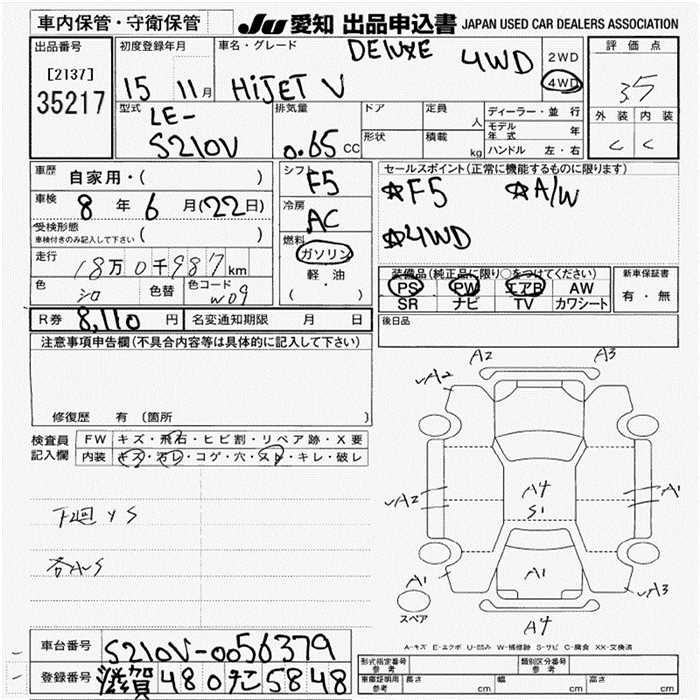 車内保管・守衛保管
JU 愛知 出品申込書 JAPAN USED CAR DEALERS ASSOCIATION
出品番号
[2137]
35217
初度登録年月
15 11月
車名・グレード
DELUXE 4WD
HiJET V
2WD
4WD
評価点
3.5
外装 内装
C C
型式
LE-
S210V
排気量
0.65 CC
ドア
定員
人
形状
積載
kg
ディーラー・並行
モデル年式 年
ハンドル 左・右
車歴
自家用・( )
車検
8年 6月(22日)
受検形態
車検付きのみ記入して下さい ( )
走行
18万0千987km
色
シロ
色替
色コード
W09
シフト
F5
冷房
AC
燃料
ガソリン
軽油
( ・ )
セールスポイント(正常に機能するものに限ります)
☆F5 ☆A/W
☆4WD
装備品(純正品に限り○をつけてください)
PS PW エアB AW
SR ナビ TV カワシート
新車保証書
有・無
R券 8,110円
名変通知期限 月 日
後日品
注意事項申告欄(不具合内容等は具体的に記入して下さい)
修復歴 有 (箇所 )
検査員記入欄
FW キズ・飛石・ヒビ割・リペア跡・X要
内装 キズ・汚レ・コゲ・穴・スレ・キレ・破レ
下廻 YS
各AS
A2 A3
A2
A2
A1
A4
S1
A1
A1
A3
スペア
A4
A-キズ E-エクボ U-凹み W-補修跡 S-サビ C-腐食 XX-交換済
車台番号 S210V-0056379
登録番号 滋賀 480 チ 5848
形式指定番号 参考
類別区分番号 参考
車庫証明用 参考
長さ cm
幅 cm
高さ cm